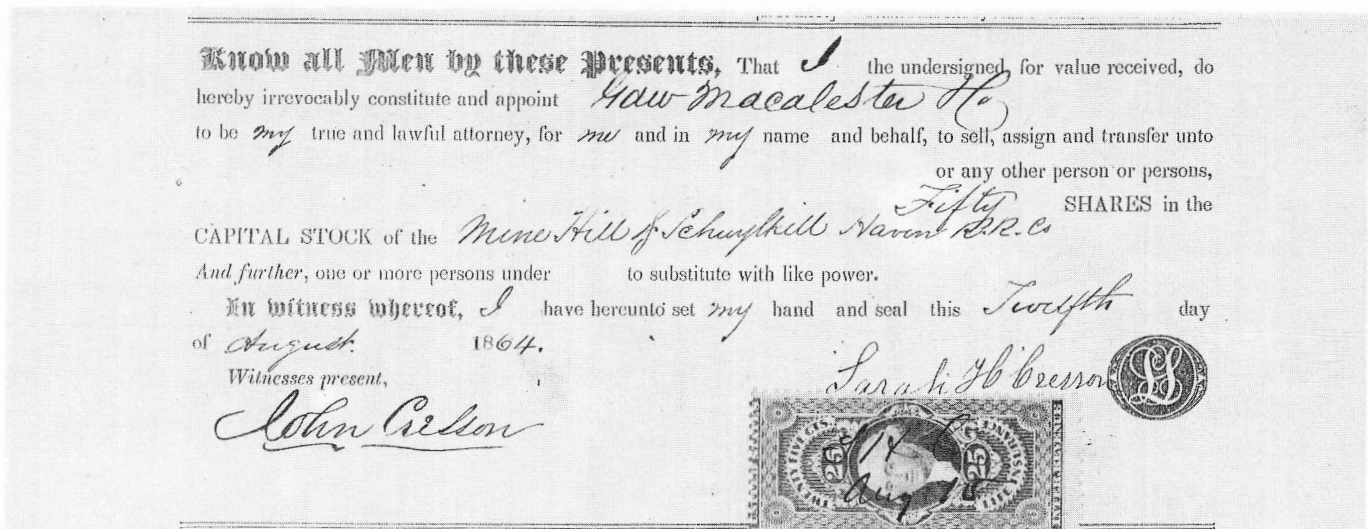 Know all Men by these Presents, That I the undersigned, for value received, do
hereby irrevocably constitute and appoint Gaw Macalester & Co
to be my true and lawful attorney, for me and in my name and behalf, to sell, assign and transfer unto
or any other person or persons,
Fifty SHARES in the
CAPITAL STOCK of the Mine Hill & Schuylkill Haven R.R. Co
And further, one or more persons under to substitute with like power.
In witness whereof, I have hereunto set my hand and seal this Twelfth day
of August. 1864.
Witnesses present,
Sarah H Cresson
LS
John Cresson
TWENTY FIVE CTS.
25
25
Aug 15